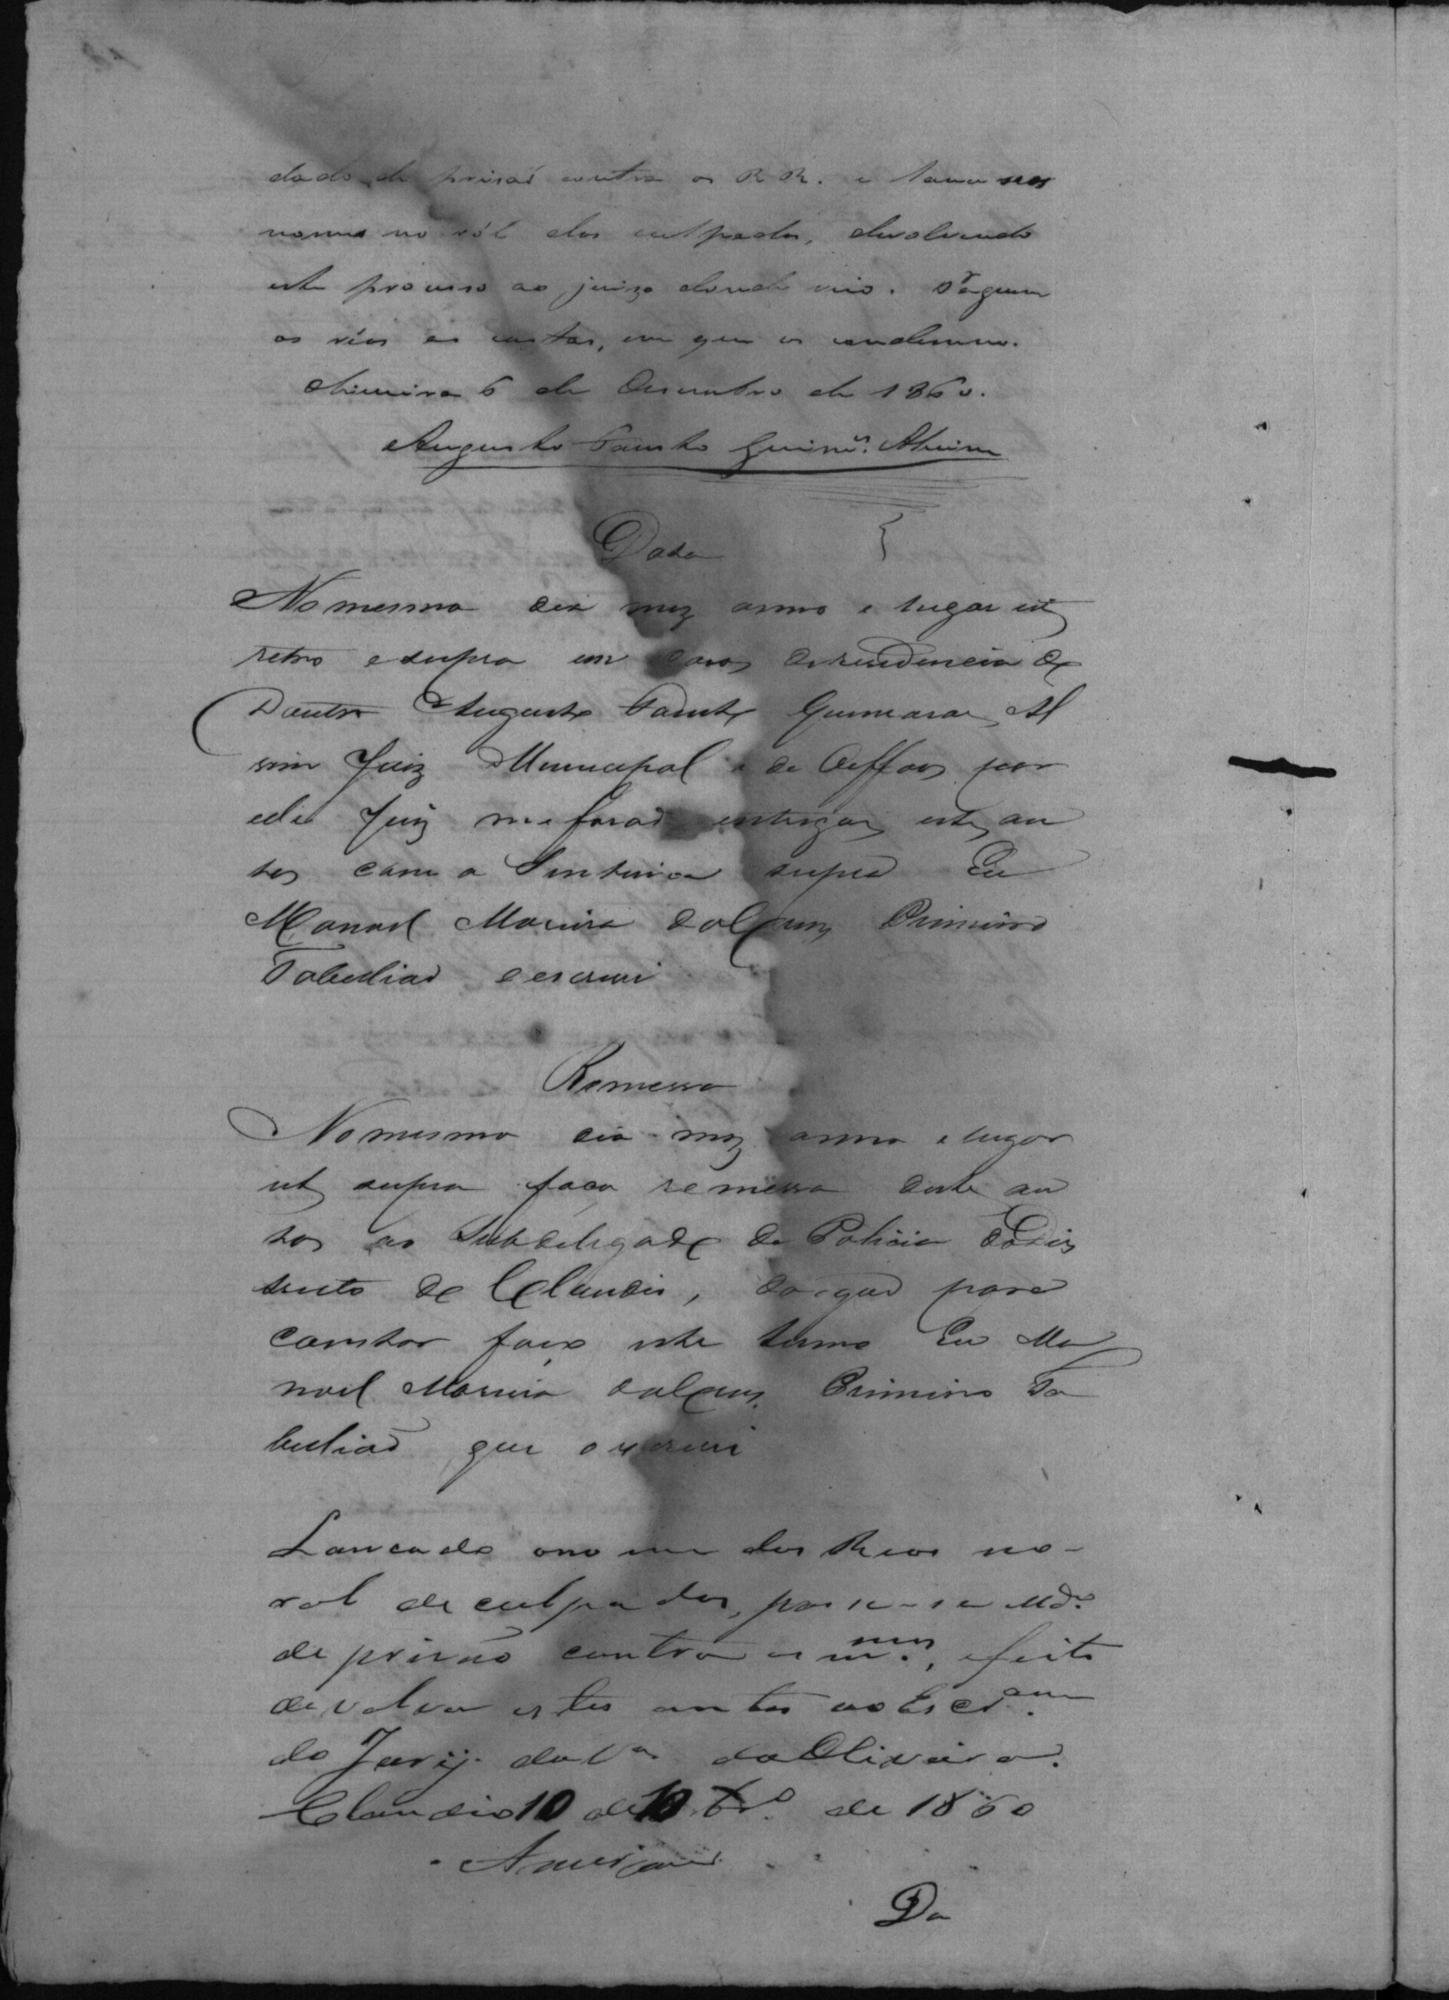 dado de prisaõ contra os R R. e lance seos
nomes no ról dos culpados, devolvendo
este processo ao juizo donde vio. Paguem
os réos as custas, em que os condemno.
Oliveira 6 de Desembro de 1860.
Augusto Fausto Guimes. Alvim
Data
No mesmo dia mez anno e lugar ut
retro e supra em casas de residencia do
Doutor Augusto Fausto Guimaraes Al
vim Juiz Municipal e de Orffaos por
ele Juiz me foraõ entregues estes au
tos com a Sentenca supra Eu
Manoel Moreira da Cruz Primeiro
Tabelliaõ o escrevi
Remessa
No mesmo dia mez anno e lugar
ut supra faco remessa deste au
tos ao Subdelegado de Policia do Dis
tricto de Claudio, do que para
constar faço este termo Eu Ma
noel Moreira da Cruz Primeiro Ta
belliaõ que o escrevi
Lancado o nome dos Reos no
rol de culpados, passe-se Mdo.
de prisão contra os mesmos, e feito
devolva estes autos ao Escram
do Jury da Va da Oliveira.
Claudio 10 de 10bro. de 1860
Da